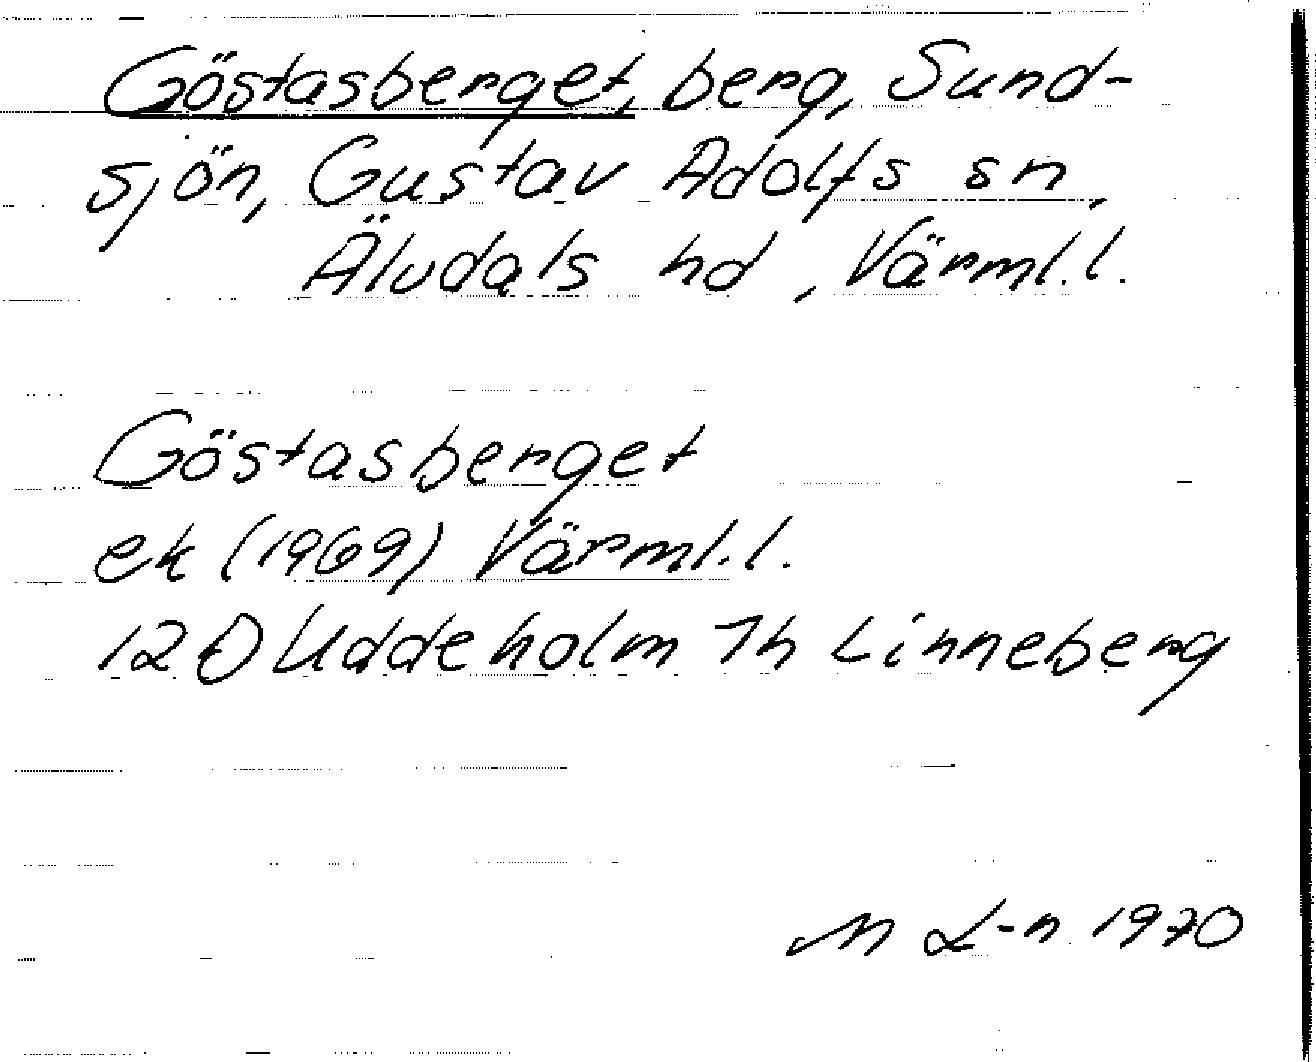 Göstasberget, berg, Sund-
sjön, Gustav Adolfs sn,
Älvdals hd, Värml.l.
Göstasberget
ek (1969) Värml.l.
12 D Uddeholm Th Linneberg
M L-n 1970